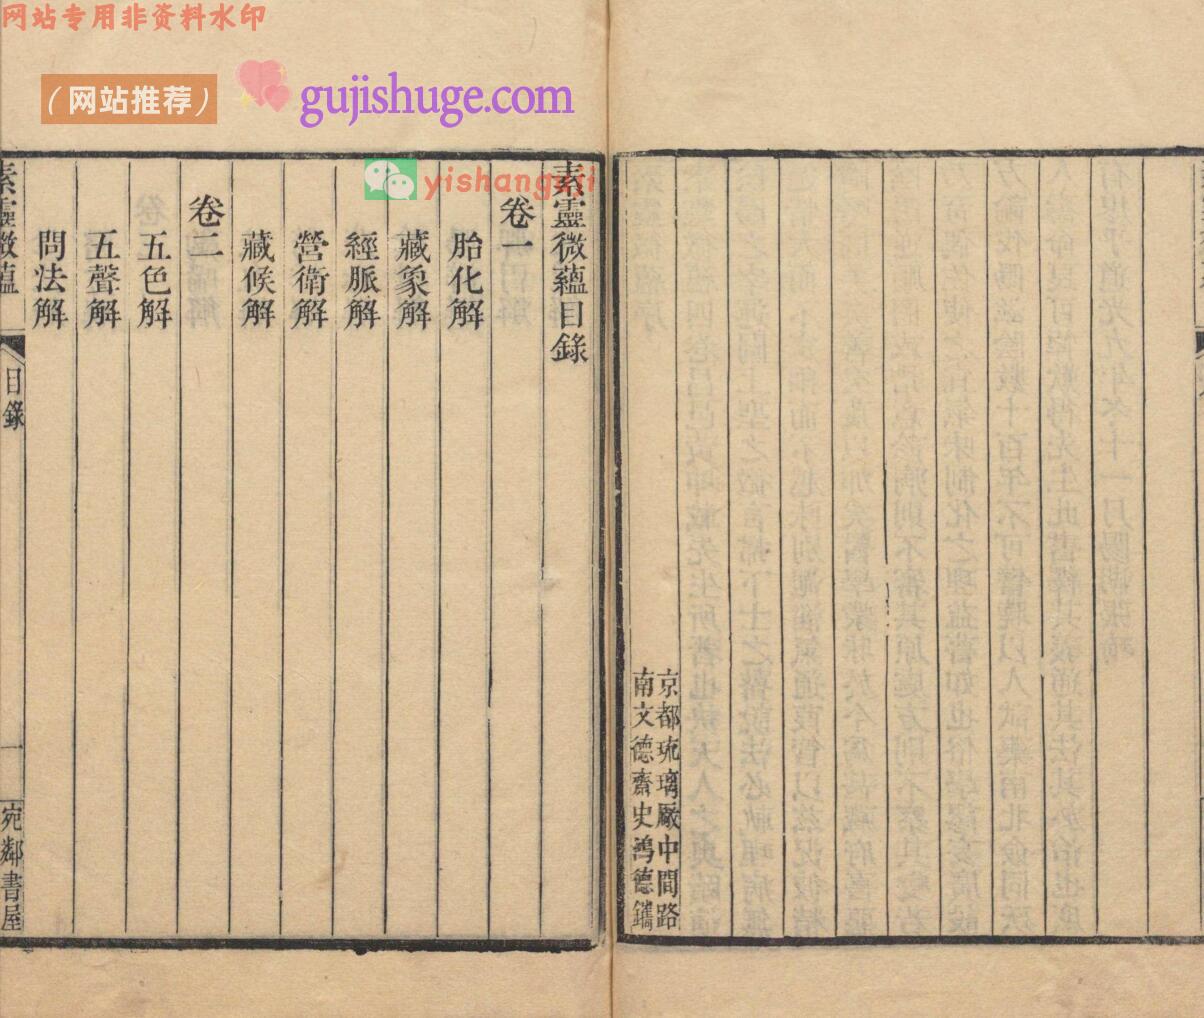 网站专用非资料水印
（网站推荐）
gujishuge.com
yishanguji
京都琉璃廠中間路
南文德齋史鴻德鐫
素靈微蘊目錄
卷一
胎化解
藏象解
經脈解
營衛解
藏候解
卷二
五色解
五聲解
問法解
素靈微蘊
目錄
一
宛鄰書屋